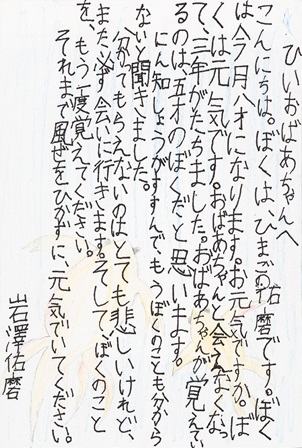 ひいおばあちゃんへ
こんにちは。ぼくは、ひまごの佑磨です。ぼく
は今月八才になります。お元気ですか。ぼ
くは元気です。おばあちゃんと会えなくなっ
て、三年がたちました。おばあちゃんが覚えてい
るのは五才のぼくだと思います。
にん知しょうがすすんでもうぼくのことも分から
ないと聞きました。
分かってもらえないのはとても悲しいけれど、
また必ず会いに行きます。そして、ぼくのこと
を、もう一度覚えてください。
それまで風ぜをひかずに、元気でいてください。
岩澤佑磨